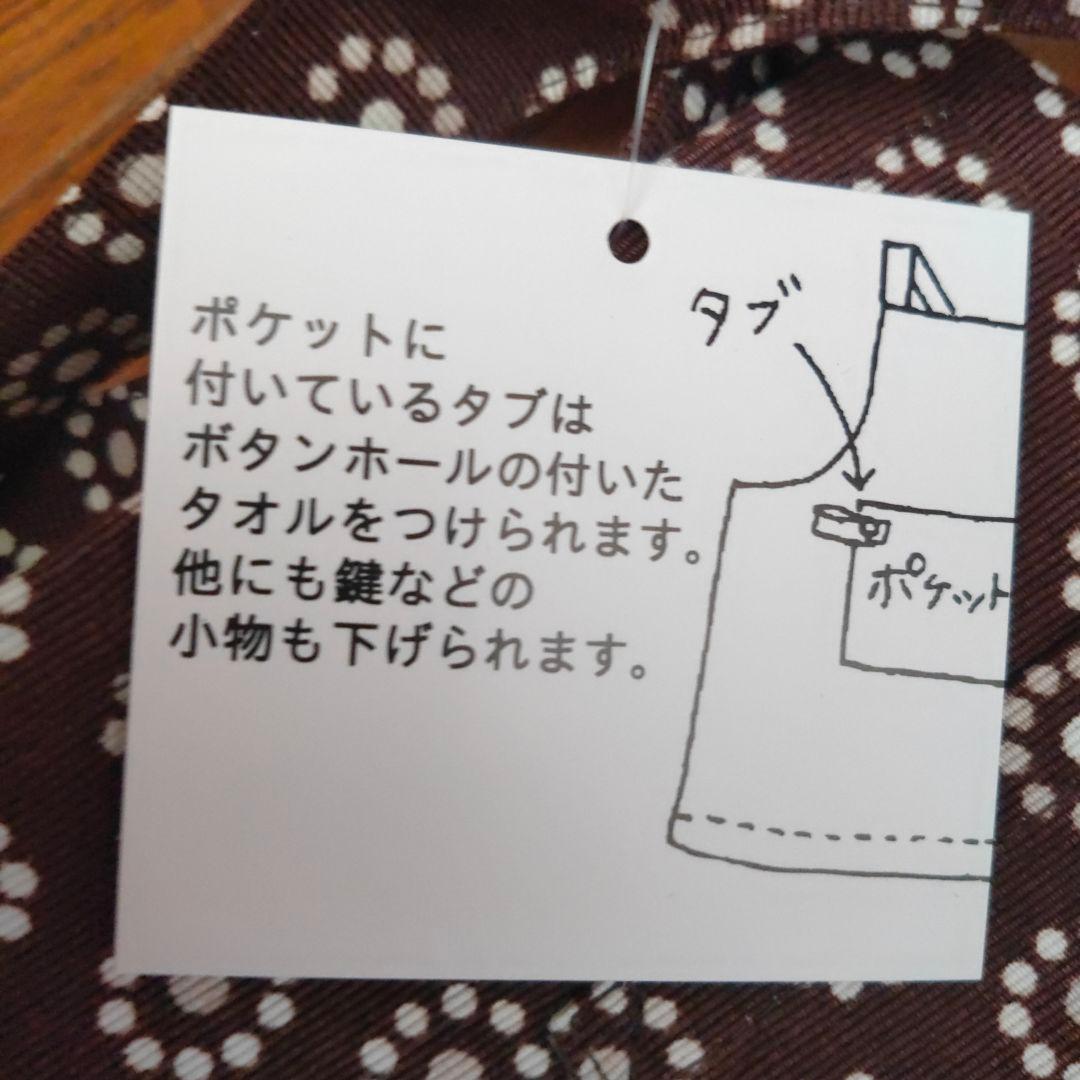 ポケットに
付いているタブは
ボタンホールの付いた
タオルをつけられます。
他にも鍵などの
小物も下げられます。
タブ
ポケット